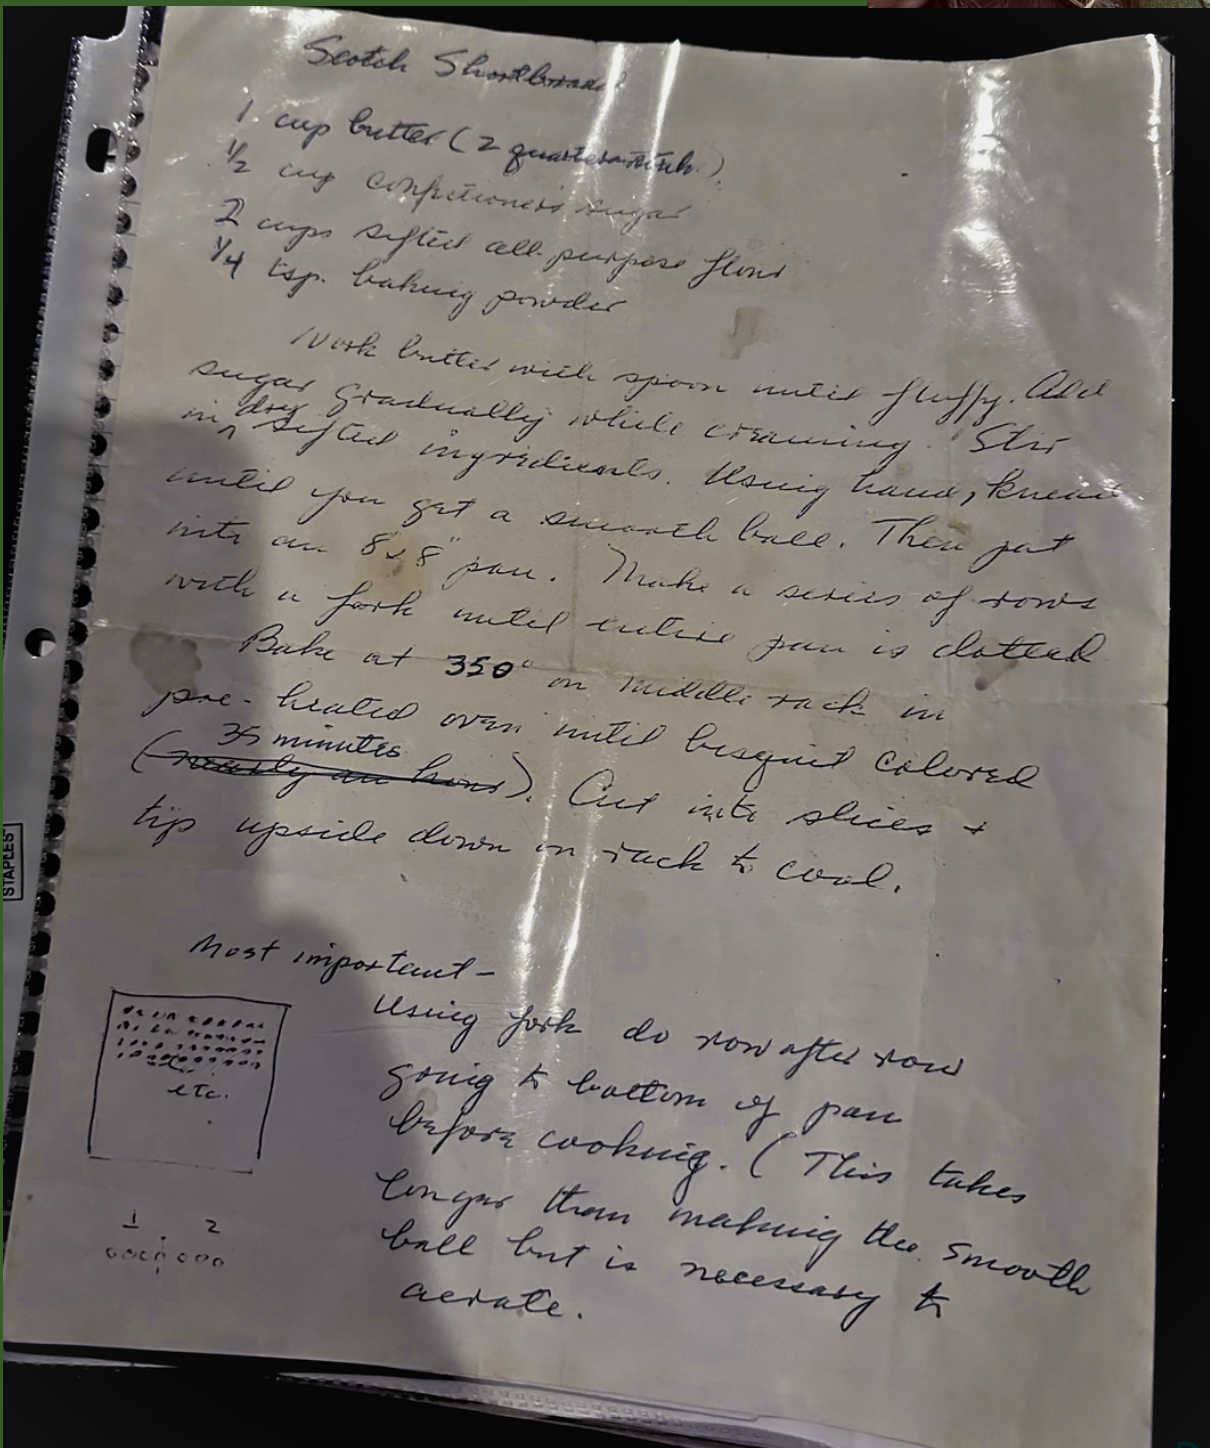 Scotch Shortbread
1 cup butter (2 quarter
1/2 cup confectioner's sugar
2 cups sifted all-purpose flour
1/4 tsp. baking powder
Work butter with spoon until fluffy. Add
sugar gradually while creaming. Stir
in dry sifted ingredients. Using hand, knead
until you get a smooth ball. Then pat
into an 8x8" pan. Make a series of rows
with a fork until entire pan is dotted
Bake at 350° on middle rack in
pre-heated oven until bisquit colored
35 minutes
(nearly an hour). Cut into slices +
tip upside down on rack to cool.
Most important-
Using fork do row after row
going to bottom of pan
before cooking. (This takes
longer than making the smooth
ball but is necessary to
aerate.
etc.
1 2
STAPLES